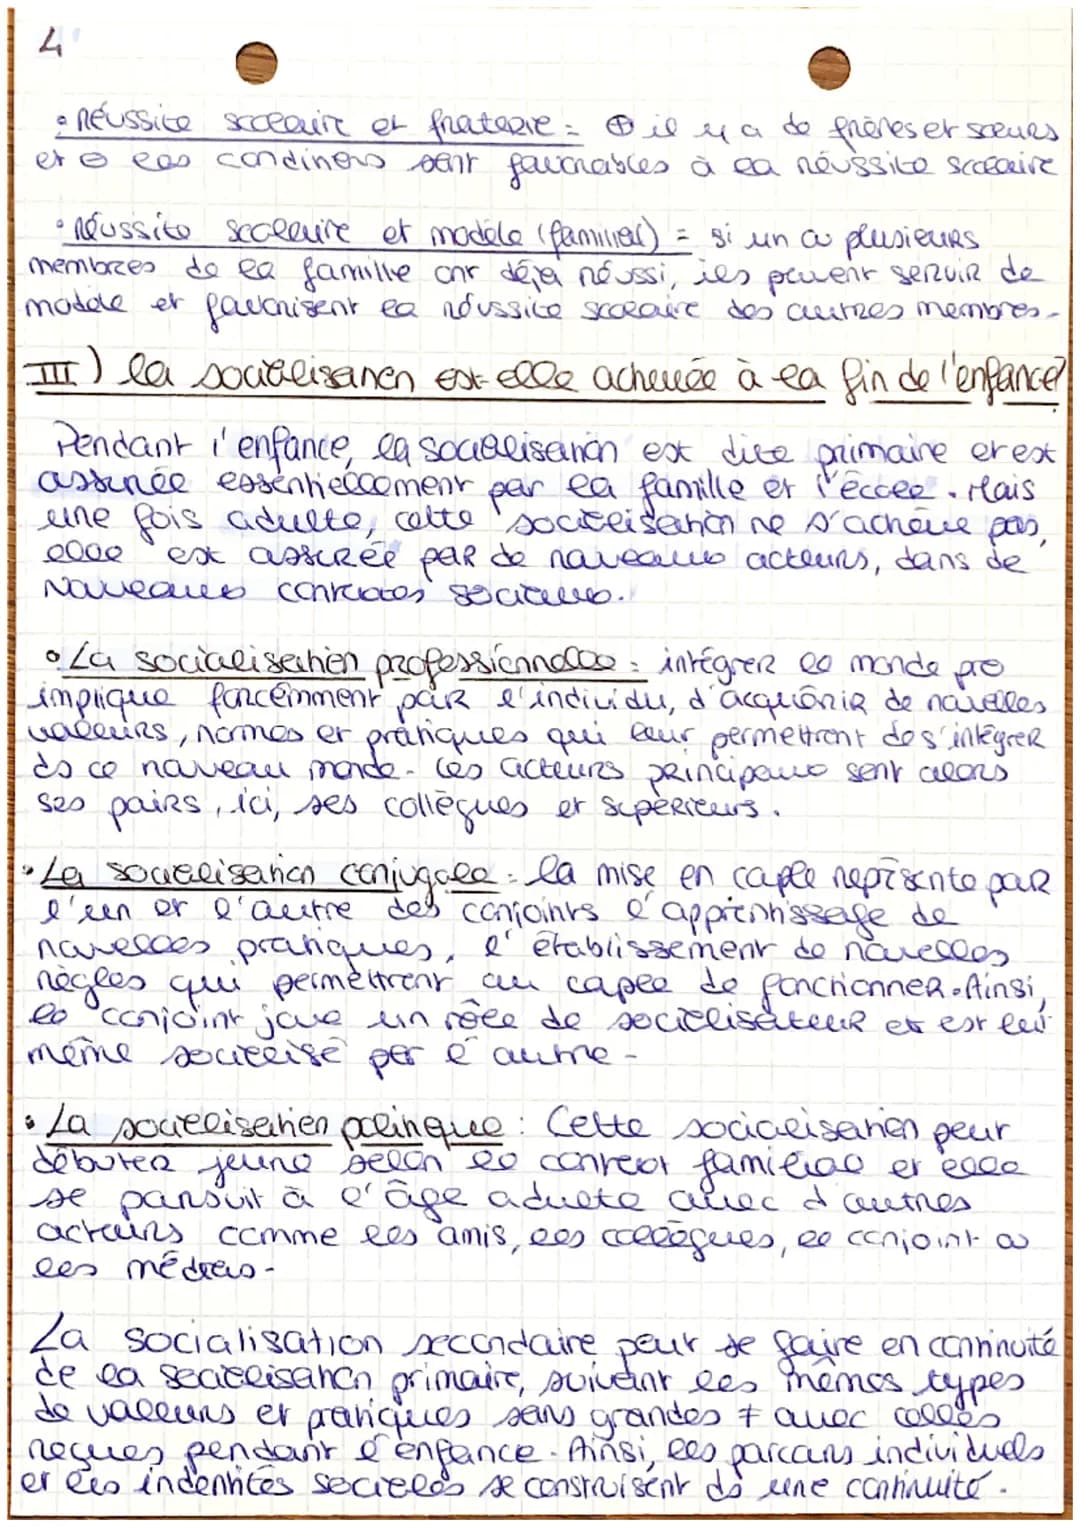 4
• Réussite scolaire et fraterie = ⊕ il y a de frères et sœurs
et ⊖ les conditions sont favorables à la réussite scolaire
• Réussite scolaire et modèle (familial) = si un ou plusieurs
membres de la famille ont déjà réussi, ils peuvent servir de
modèle et favorisent la réussite scolaire des autres membres.
III) la socialisation est-elle achevée à la fin de l'enfance?
Pendant l'enfance, la socialisation est dite primaire et est
assurée essentiellement par la famille et l'école. Mais
une fois adulte, cette socialisation ne s'achève pas,
elle est assurée par de nouveaux acteurs, dans de
nouveaux contextes sociaux.
• La socialisation professionnelle : intégrer le monde pro
implique forcémment pour l'individu, d'acquérir de nouvelles
valeurs, normes et pratiques qui leur permettront de s'intégrer
ds ce nouveau monde. Les acteurs principaux sont alors
ses pairs, ici, ses collègues et supérieurs.
• La socialisation conjugale : la mise en couple représente pour
l'un et l'autre des conjoints l'apprentissage de
nouvelles pratiques, l'établissement de nouvelles
règles qui permettront au couple de fonctionner. Ainsi,
le conjoint joue un rôle de socialisateur et est lui
même socialisé par l'autre.
• La socialisation politique : Cette socialisation peut
débuter jeune selon le contexte familial et elle
se poursuit à l'âge adulte avec d'autres
acteurs comme les amis, les collègues, le conjoint ou
les médias.
La socialisation secondaire peut se faire en continuité
de la socialisation primaire, suivant les mêmes types
de valeurs et pratiques sans grandes ≠ avec celles
reçues pendant l'enfance. Ainsi, les parcours individuels
et les indentités sociales se construisent ds une continuité.